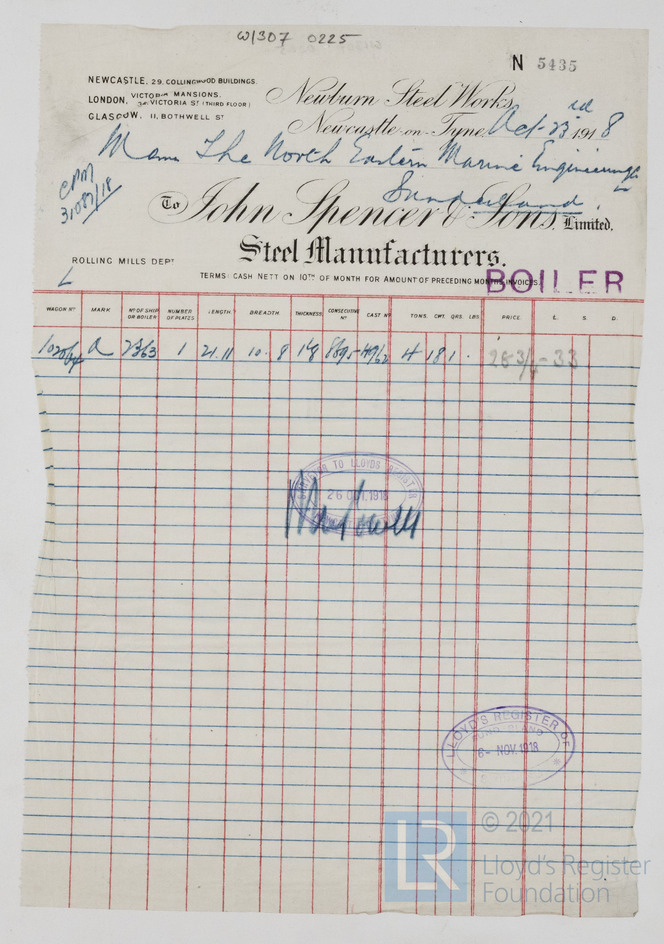 W1307 0225
N 5435
NEWCASTLE, 29, COLLINGWOOD BUILDINGS.
LONDON, VICTORIA MANSIONS.
VICTORIA ST (THIRD FLOOR)
GLASGOW, 11, BOTHWELL ST
Newburn Steel Works,
Newcastle-on-Tyne, Oct. 23rd 1918
The North Eastern Marine Engineering
Sunderland.
To John Spencer & Sons, Limited.
Steel Manufacturers.
ROLLING MILLS DEPT
TERMS: CASH NETT ON 10TH OF MONTH FOR AMOUNT OF PRECEDING MONTHS INVOICES.
BOILER
WAGON No MARK No OF SHIP OR BOILER NUMBER OF PLATES LENGTH BREADTH THICKNESS CONSECUTIVE No CAST No TONS. CWT. QRS. LBS. PRICE £. S. D.
A 2363 1 21.11 10. 8 4 18 1 .
SURVEYOR TO LLOYDS REGISTER
26 OCT. 1918
LLOYD'S REGISTER OF
SUNDERLAND
6- NOV. 1918
LR
© 2021
Lloyd's Register
Foundation